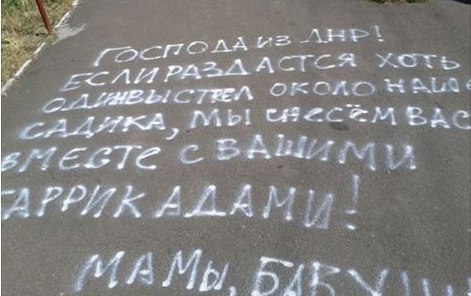 ГОСПОДА ИЗ ДНР!
ЕСЛИ РАЗДАСТСЯ ХОТЬ
ОДИН ВЫСТРЕЛ ОКОЛО
САДИКА, МЫ СНЕСЁМ ВАС
ВМЕСТЕ С ВАШИМИ
МАМЫ,